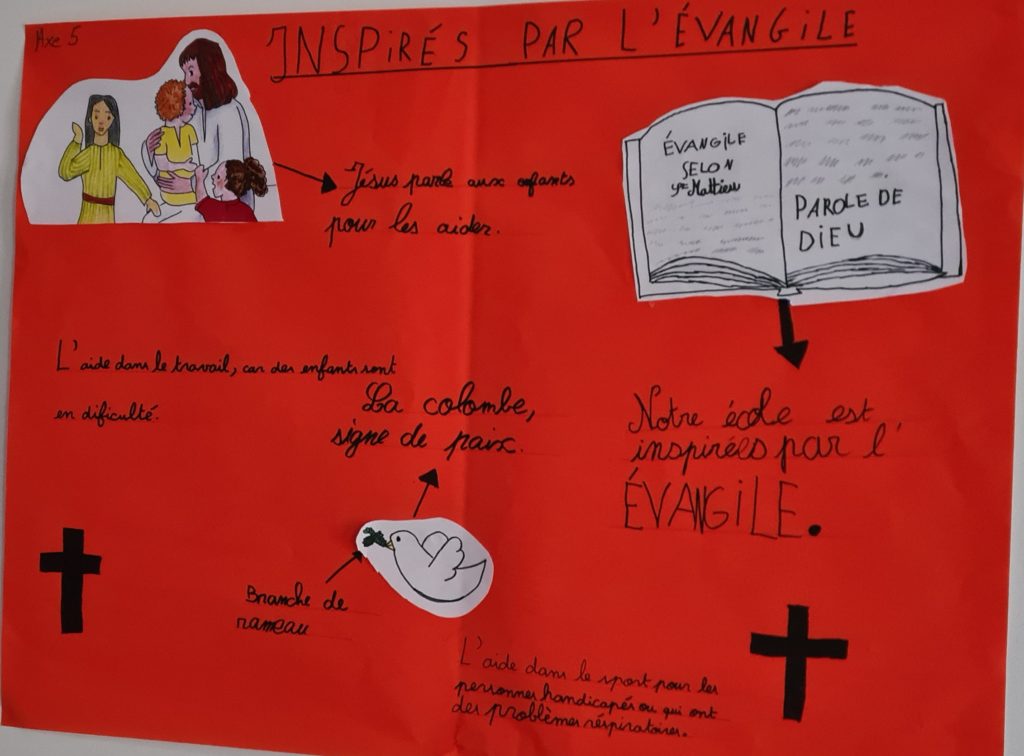 Axe 5
INSPIRÉS PAR L'ÉVANGILE
Jésus parle aux enfants
pour les aider.
ÉVANGILE
SELON
Mathieu
PAROLE DE
DIEU
L'aide dans le travail, car des enfants sont
en dificulté.
La colombe,
signe de paix.
Notre école est
inspirées par l'
ÉVANGILE.
Branche de
rameau
L'aide dans le sport pour les
personnes handicapés ou qui ont
des problèmes réspiratoires.